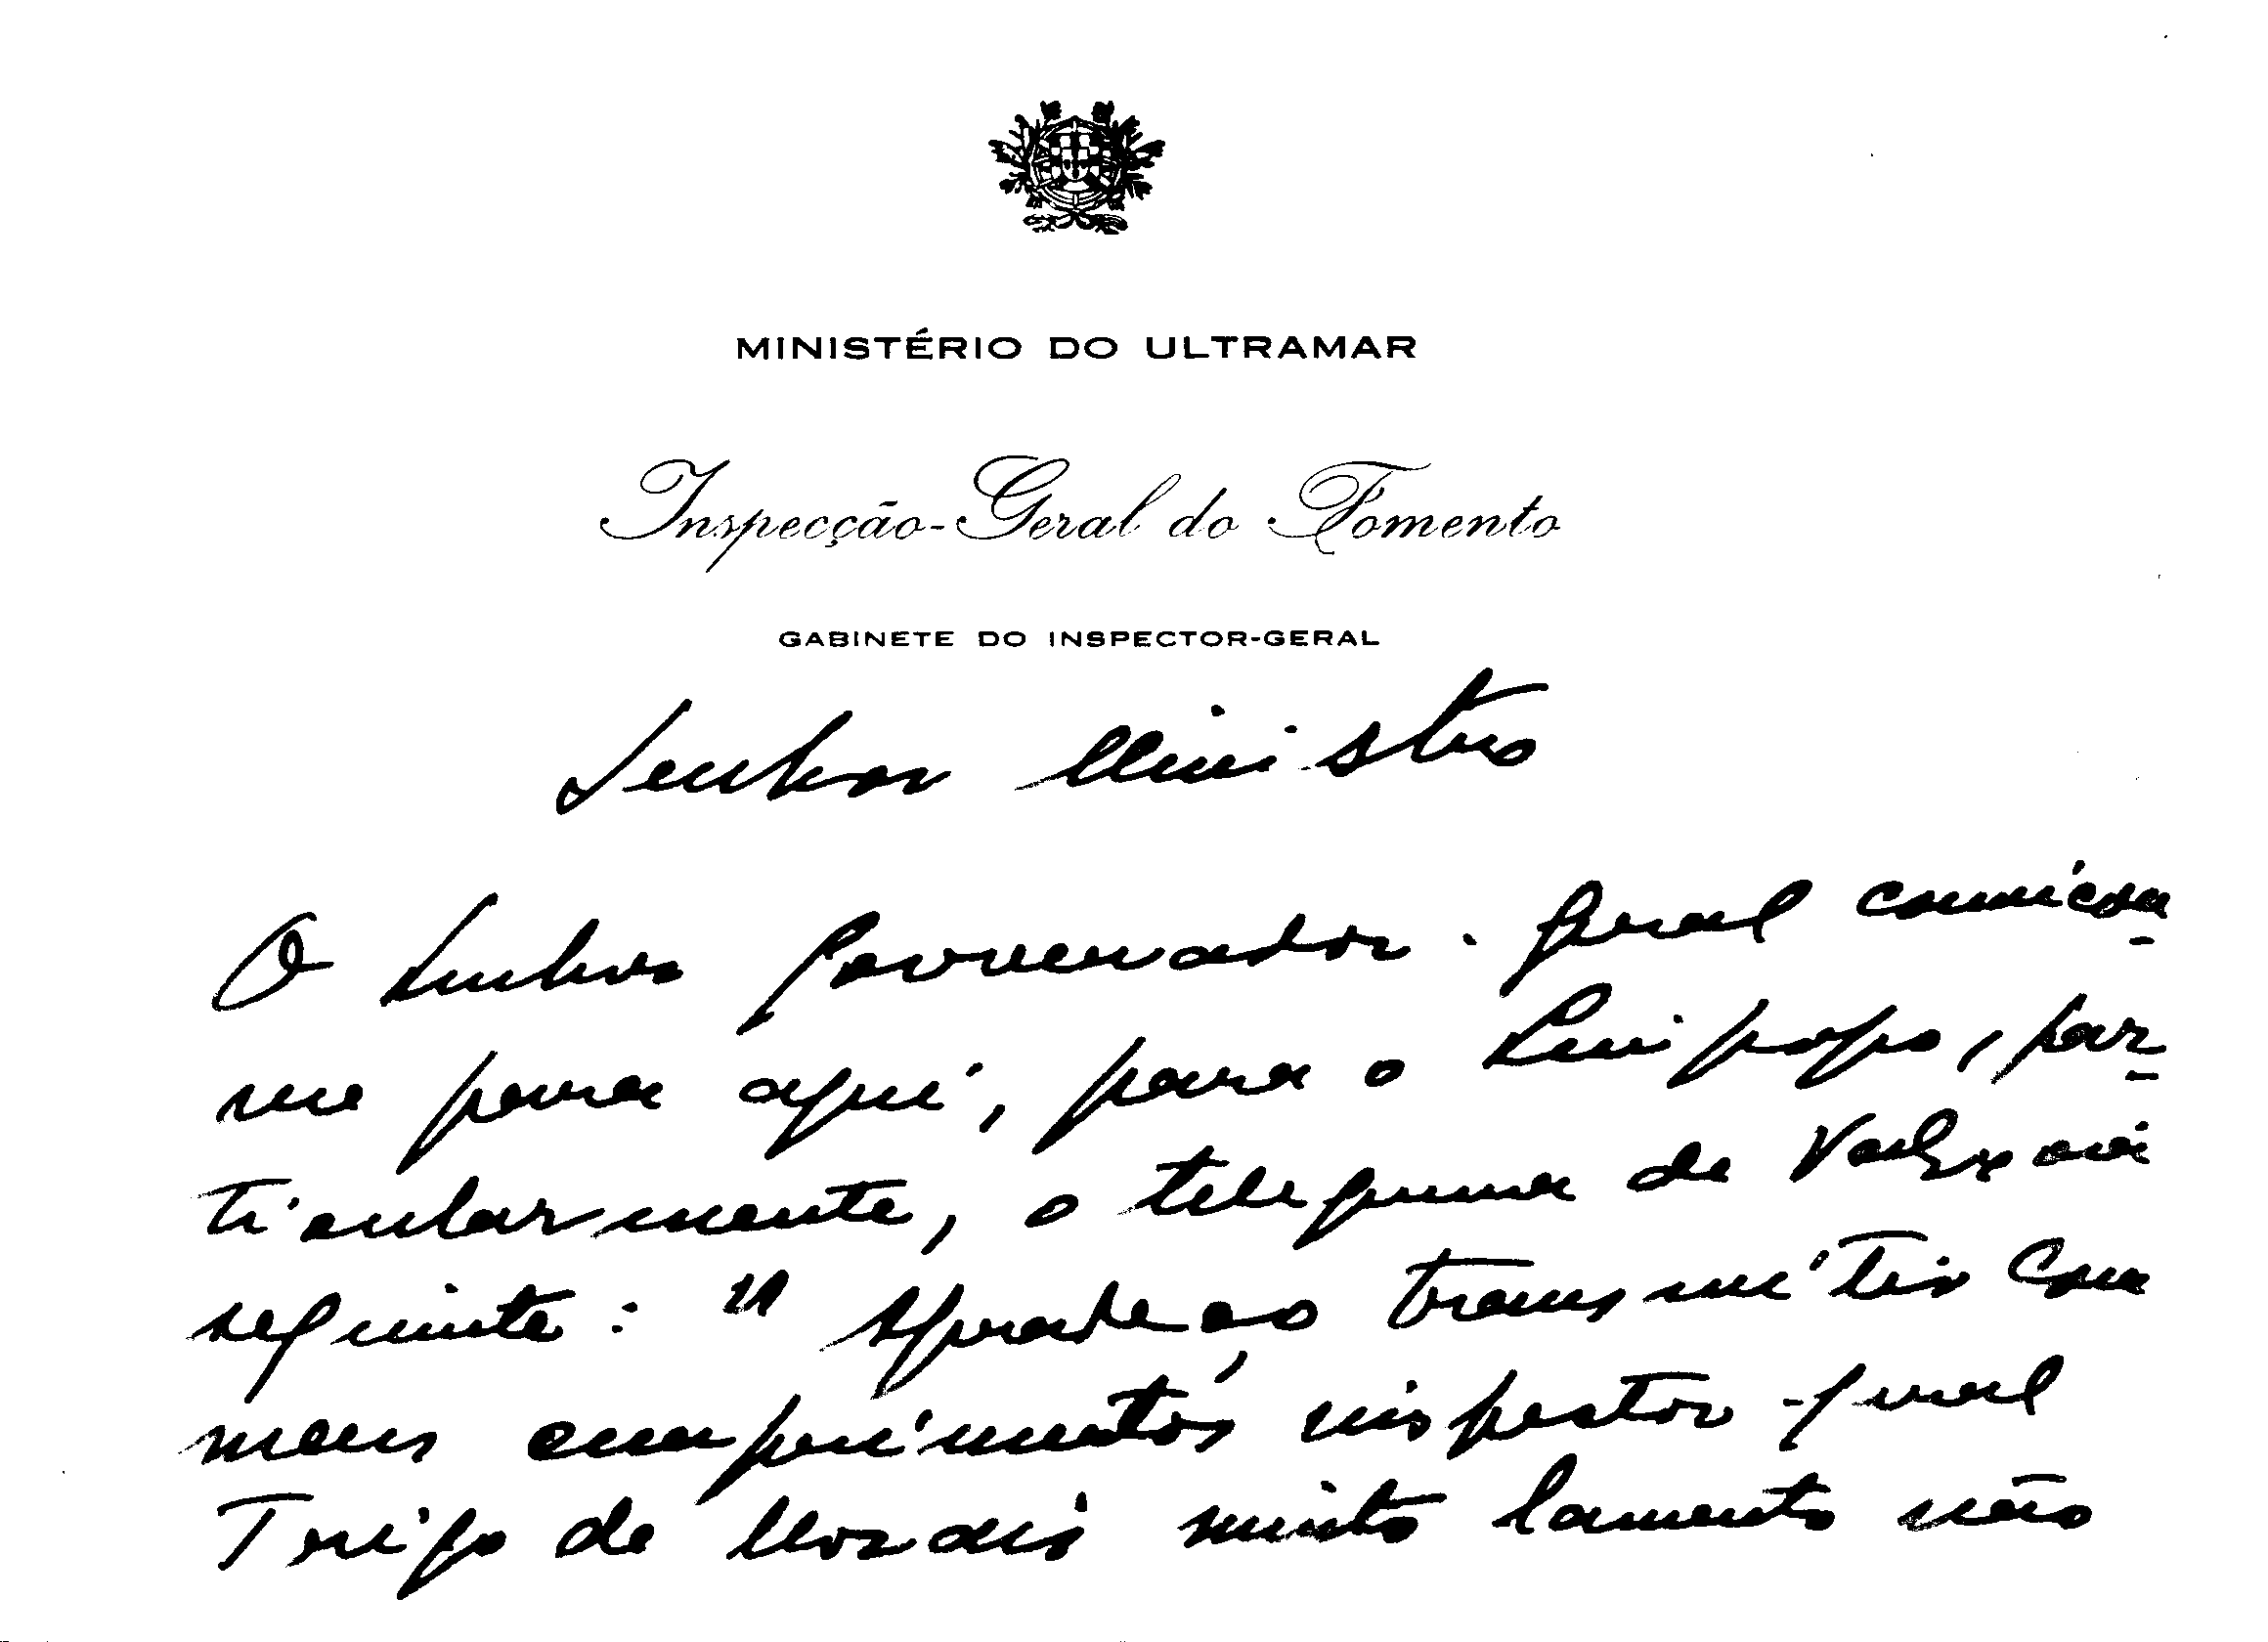 MINISTÉRIO DO ULTRAMAR
Inspecção-Geral do Fomento
GABINETE DO INSPECTOR-GERAL
Senhor Ministro
O Senhor Governador-Geral
me para aqui, para o Limpopo, par-
ticularmente, o telegrama de
seguinte: "Agradeço transmitir com
meus cumprimentos inspector-geral
Trigo de Morais muito lamento não